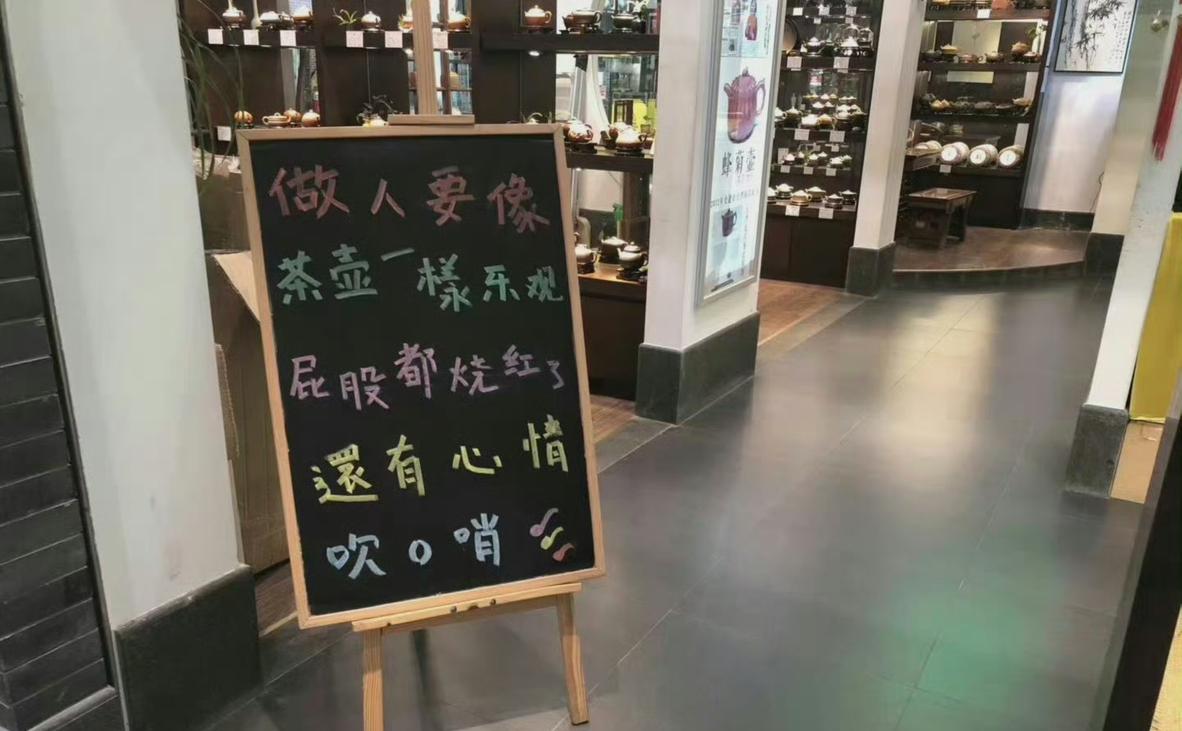 做人要像
茶壶一樣乐观
屁股都烧红了
還有心情
吹口哨